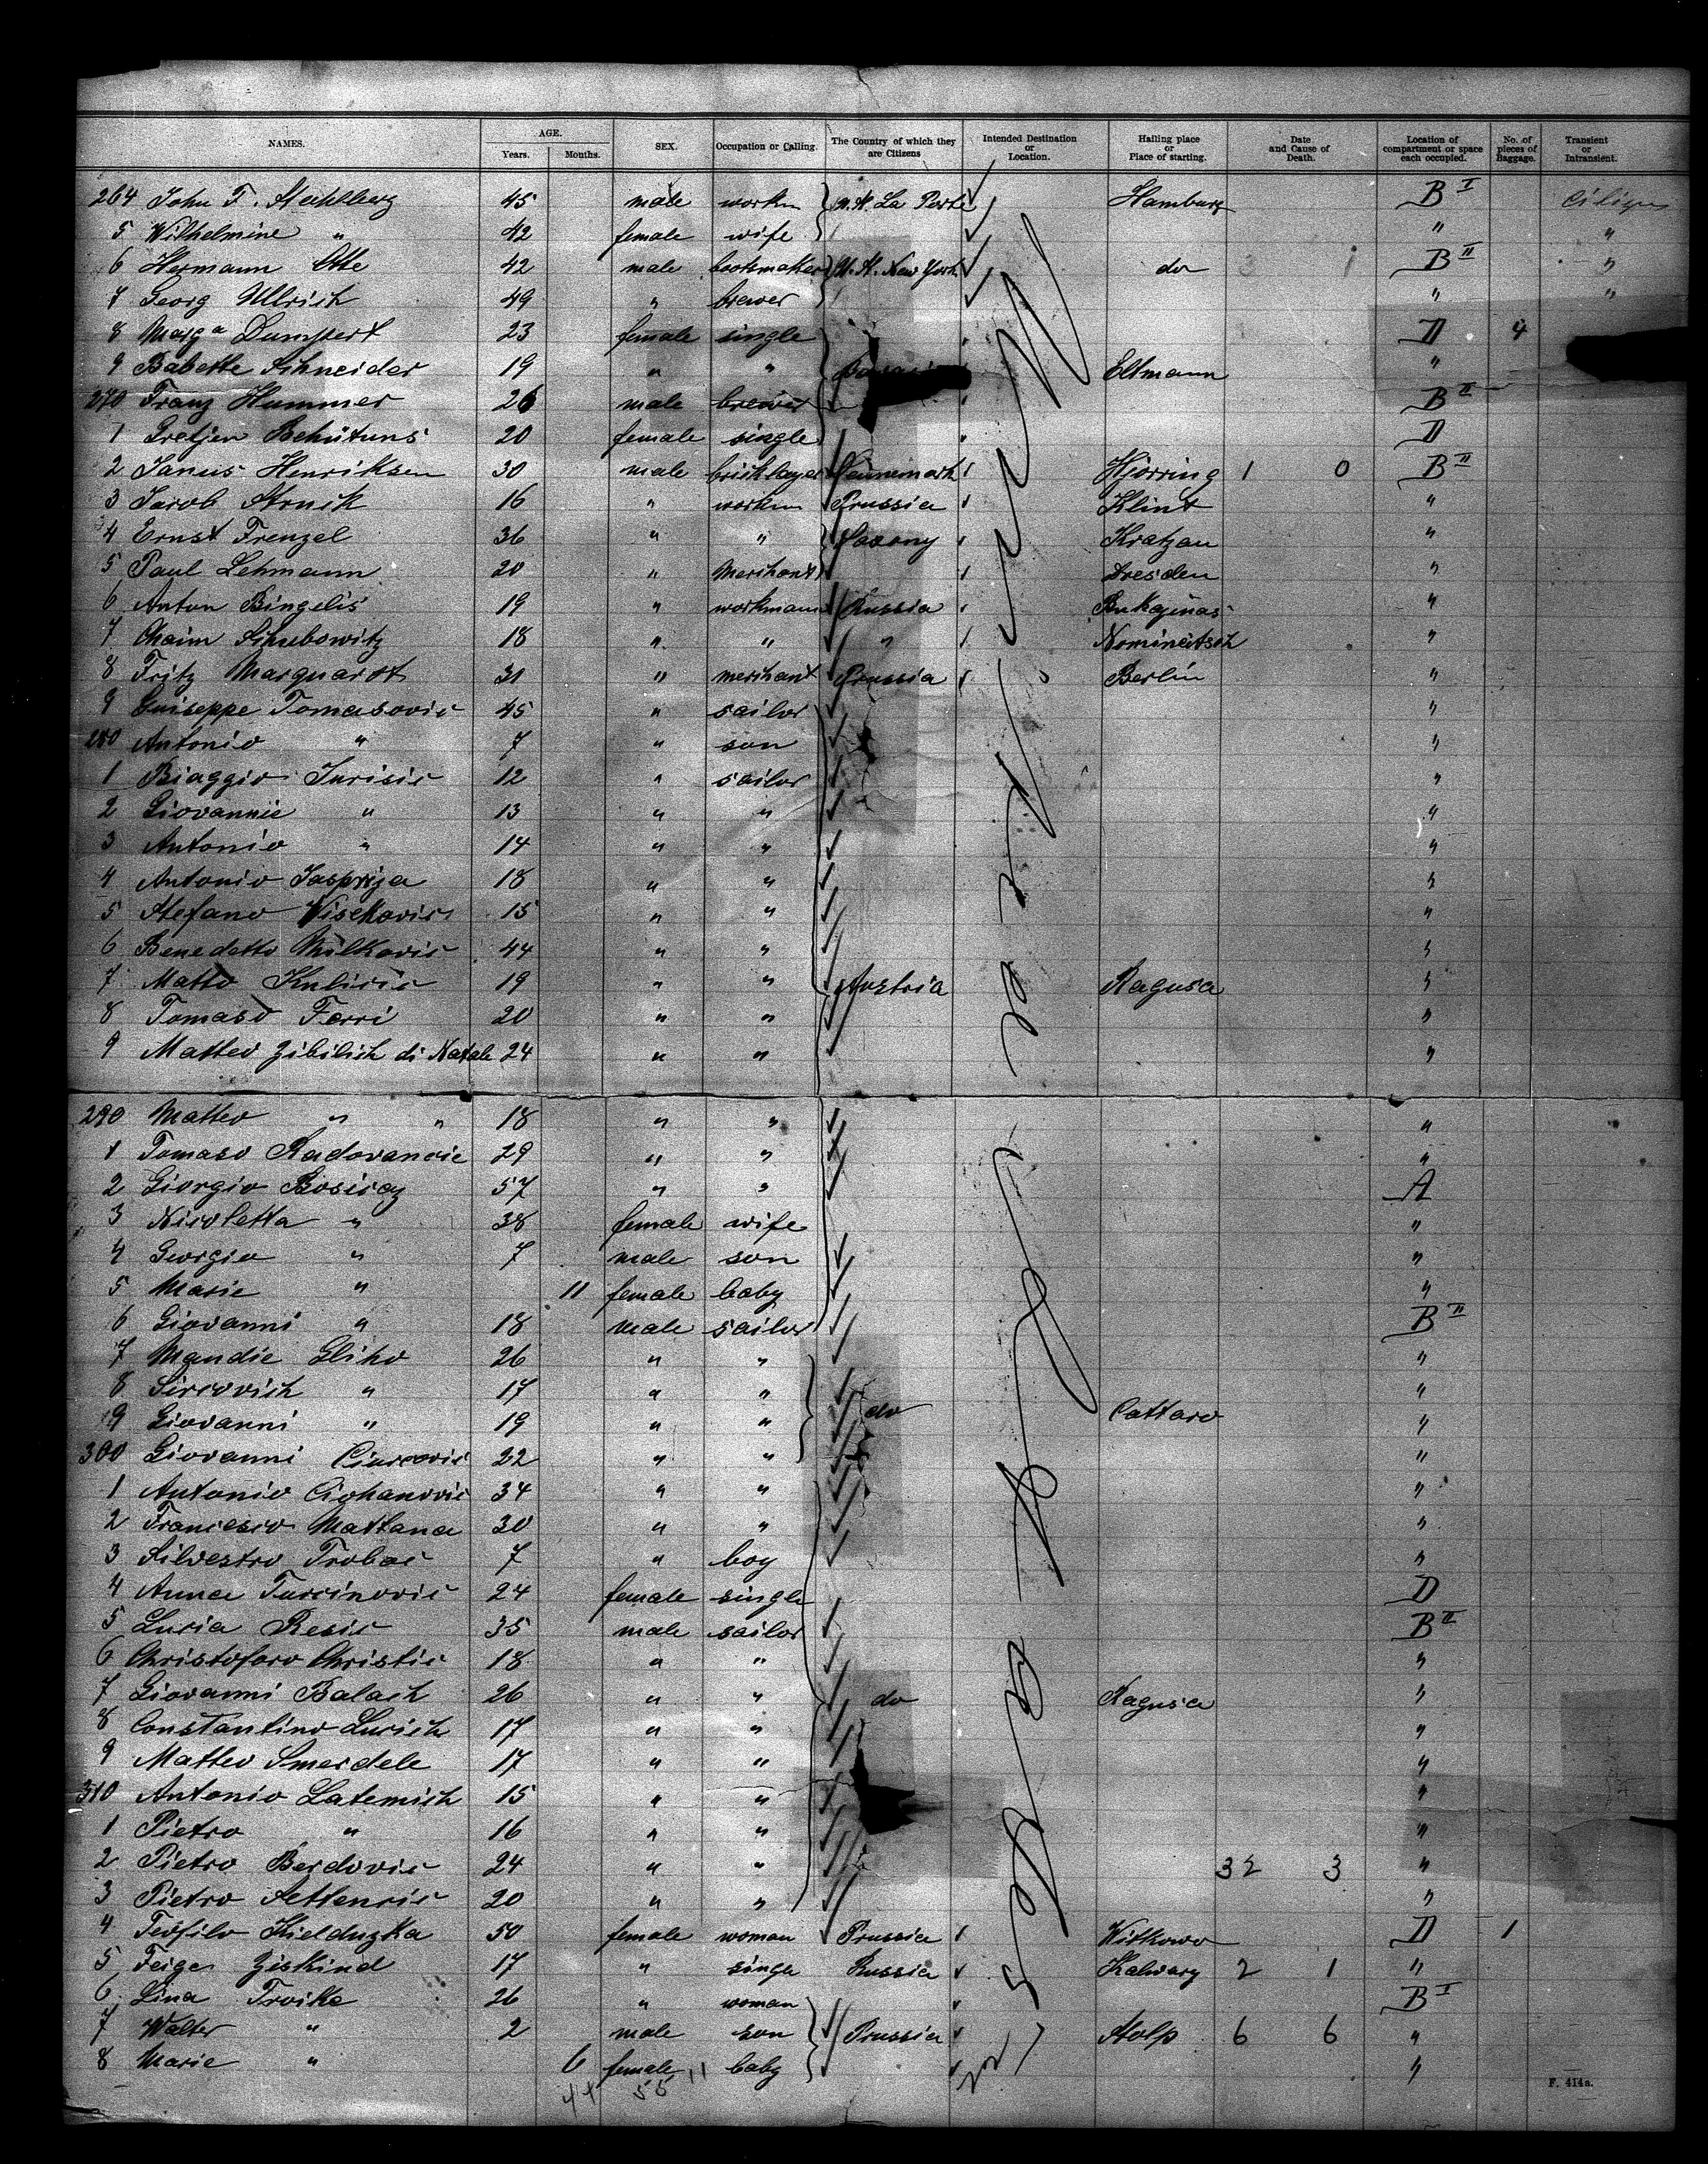 NAMES. AGE. Years. Months. SEX. Occupation or Calling. The Country of which they are Citizens Intended Destination or Location. Hailing place or Place of starting. Date and Cause of Death. Location of compartment or space each occupied. No. of pieces of Baggage. Transient or Intransient.
264 John F. 45 male workm Hamburg B I
5 Wilhelmine " 42 female wife " "
6 Hermann Otte 42 male bookmaker New York do B II "
7 Georg Ullrich 49 " brewer " "
8 Marga Dumpert 23 female single D 4
9 Babette Schneider 19 " " Eltmann "
270 Franz Hummer 26 male brewer B II
1 Gretjen 20 female single D
2 Janus Henriksen 30 male bricklayer Dännemark Hjörring 1 0 B II
3 Jacob 16 " workm Prussia Klint "
4 Ernst Frenzel 36 " " Saxony Kratzau "
5 Paul Lehmann 20 " Merchant Dresden "
6 Anton Bingelis 19 " workmann Russia "
7 Chaim Schubowitz 18 " " " "
8 Fritz Marquardt 31 " merchant Prussia Berlin "
9 Guiseppe Tomasovic 45 " sailor "
280 Antonio " 7 " son "
1 Biaggio Jurisic 12 " sailor "
2 Giovannie " 13 " " "
3 Antonio " 14 " " "
4 Antonio Jasprija 18 " " "
5 Stefano Visckovic 15 " " "
6 Benedetto Milkovic 44 " " "
7 Matto Kulisic 19 " " Austria Ragusa "
8 Tomaso Ferri 20 " " "
9 Matteo Zibilich di Natale 24 " " "
290 Matteo " " 18 " " "
1 Tomaso Radovancic 29 " " "
2 Giorgio 57 " " A
3 Nicoletta " 38 female wife "
4 Georgio " 7 male son "
5 Marie " 11 female baby "
6 Giovanni " 18 male sailor B II
7 Mandic Gliho 26 " " "
8 " 17 " " "
9 Giovanni " 19 " " do Cattaro "
300 Giovanni 22 " " "
1 Antonio 34 " " "
2 Francesco Mattana 30 " " "
3 Silvestro 7 " boy "
4 Anna Turcinovic 24 female single D
5 Resic 35 male sailor B II
6 Christoforo Christic 18 " " "
7 Giovanni Balach 26 " " do Ragusa "
8 Constantino Lucich 17 " " "
9 Matteo Smerdele 17 " " "
310 Antonio Latemich 15 " " "
1 Pietro " 16 " " "
2 Pietro Berdovic 24 " " 32 3 "
3 Pietro 20 " " "
4 Teofilo 50 female woman Prussia Witkowo D 1
5 Feige Ziskind 17 " Russia Kalwary 2 1 "
6 Lina Troike 26 " woman B I
7 Walter " 2 male son Prussia Stolp 6 6 "
8 Marie " 6 female baby "
44 55 11
F. 414a.